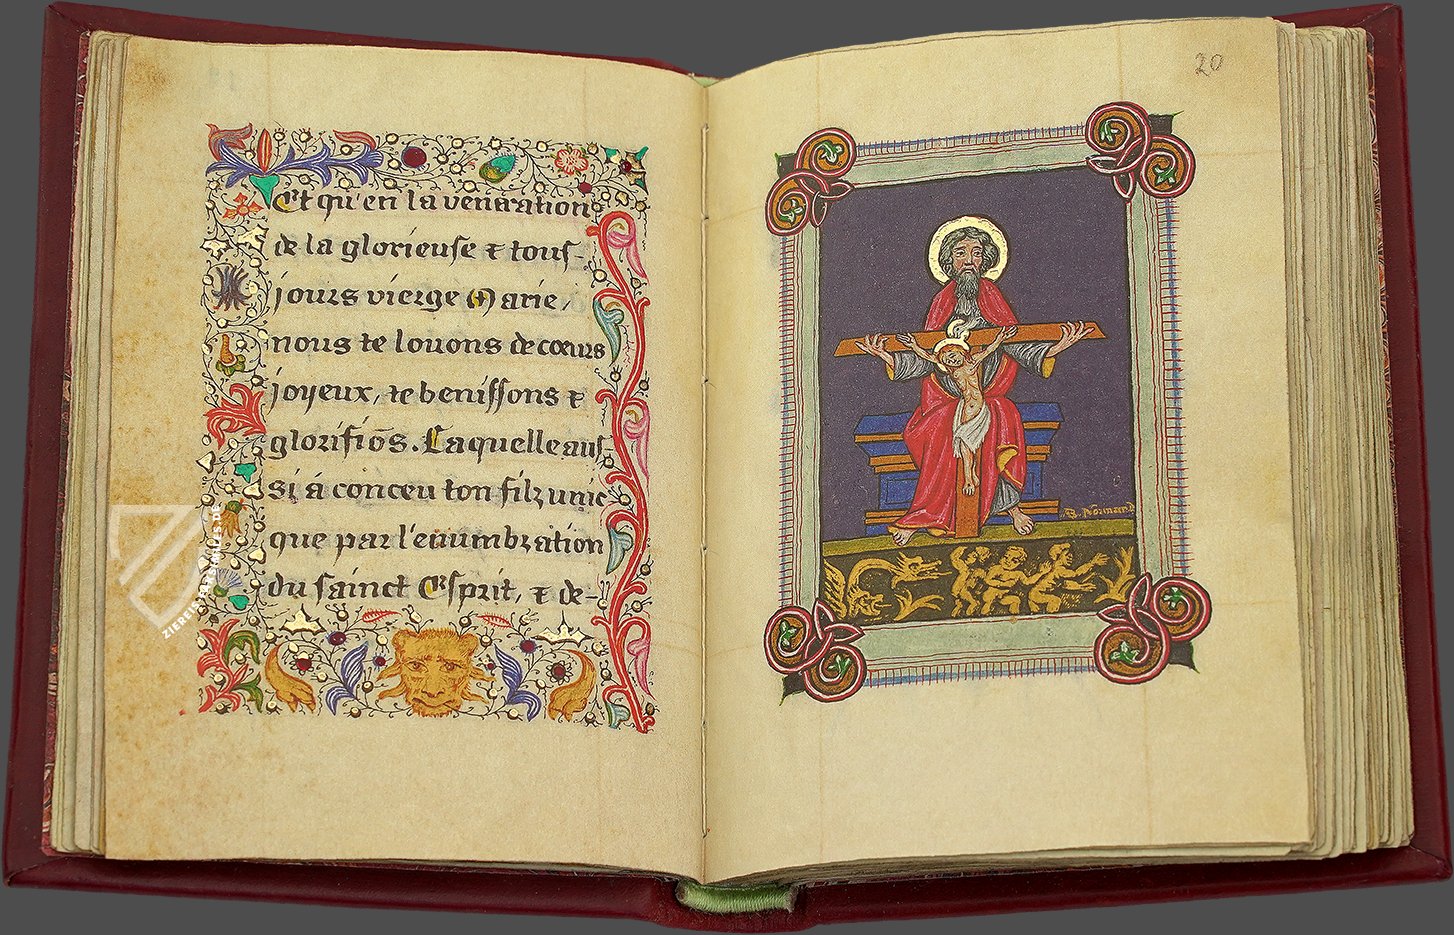 Et qu'en la veneration
de la glorieuse & tous-
jours vierge Marie,
nous te louons de cœurs
joyeux, te benissons &
glorifiōs. Laquelle aus-
si á conceu ton filz unic-
que par l'enumbration
du sainct Esprit, & de-
20
B. Normand
ZIEREIS FAKSIMILES.DE